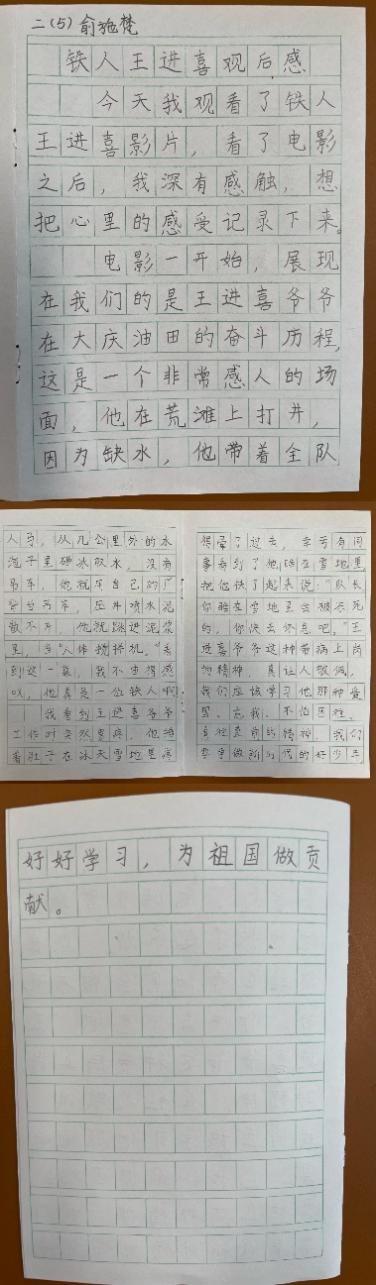 二(5) 俞施梵
铁人王进喜观后感
今天我观看了铁人
王进喜影片，看了电影
之后，我深有感触，想
把心里的感受记录下来。
电影一开始，展现
在我们的是王进喜爷爷
在大庆油田的奋斗历程，
这是一个非常感人的场
面，他在荒滩上打井，
因为缺水，他带着全队
人马，从几公里外的水
泡子里砸冰取水，没有
吊车，他就用自己的
泥
散不开，他就跳进泥浆
里，当"人体搅拌机。"看
到这一幕，我不由得感
叹，他真是一位铁人啊！
我看到王进喜爷爷
工作时突然胃疼，他
着肚子在冰天雪地里疼
得晕了过去，幸亏有同
事看到了他睡在雪地里
把他扶了起来说："队长
你睡在雪地里会被冻死
的，你快去休息吧。"王
进喜爷爷这种带病上岗
的精神，真让人敬佩。
我们应该学习他那种爱
国、忘我、不怕困难、
的精神，我们
要争做新时代的好少年
好好学习，为祖国做贡
献。